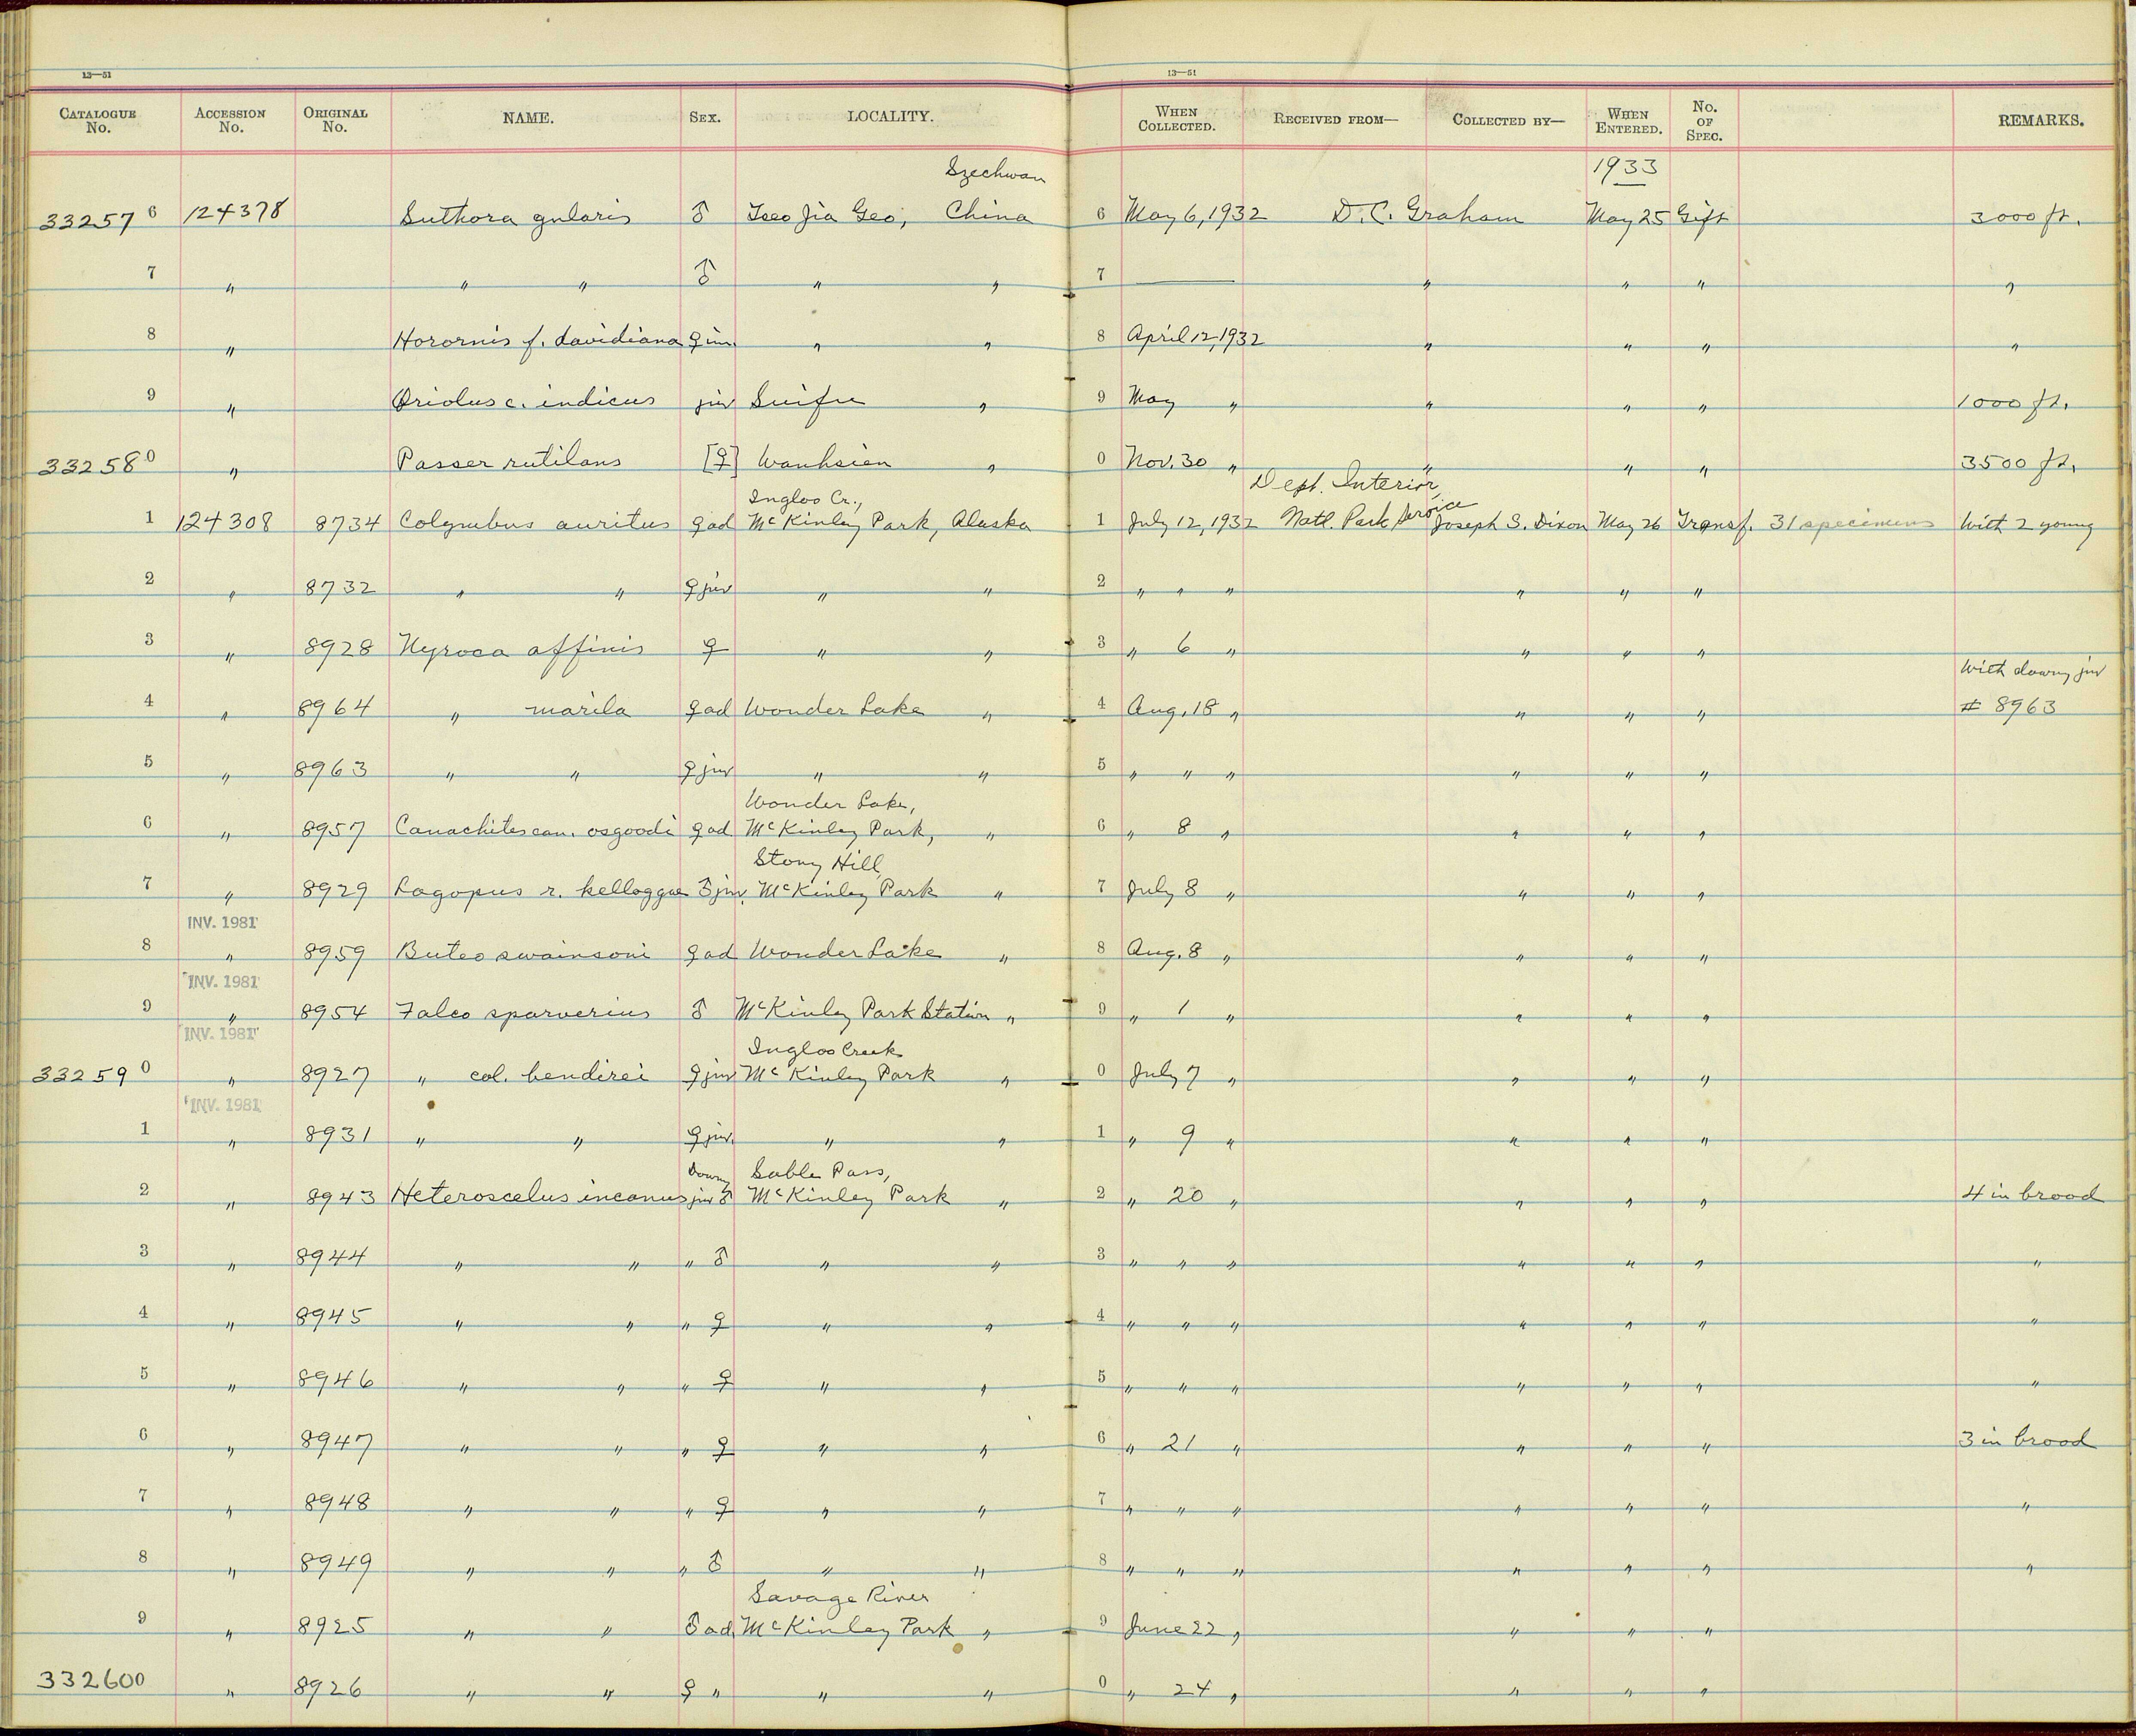 13—51 13—51
CATALOGUE No. ACCESSION No. ORIGINAL No. NAME. SEX. LOCALITY. WHEN COLLECTED. RECEIVED FROM— COLLECTED BY— WHEN ENTERED. No. OF SPEC. REMARKS.
Szechwan 1933
332576 124378 Suthora gularis ♂ Tseo Jia Geo, China 6 May 6, 1932 D. C. Graham May 25 Gift 3000 ft.
7 " " " ♂ " " 7 — " " " "
8 " Horornis f. davidiana ♀ im. " " 8 April 12, 1932 " " " "
9 " Oriolus c. indicus juv Suifu " 9 May " " " " 1000 ft.
332580 " Passer rutilans [♀] Wanhsien " 0 Nov. 30 " " " " 3500 ft.
Ingloo Cr., Dept. Interior,
1 124308 8734 Colymbus auritus ♀ ad McKinley Park, Alaska 1 July 12, 1932 Natl. Park Service Joseph S. Dixon May 26 Transf. 31 specimens With 2 young
2 " 8732 " " ♀ juv " " 2 " " " " " "
3 " 8928 Nyroca affinis ♀ " " 3 " 6 " " " "
With downy juv
4 " 8964 " marila ♀ ad Wonder Lake " 4 Aug. 18 " " " " # 8963
5 " 8963 " " ♀ juv " " 5 " " " " " "
Wonder Lake,
6 " 8957 Canachites can. osgoodi ♀ ad McKinley Park, " 6 " 8 " " " "
Stony Hill,
7 " 8929 Lagopus r. kelloggae ♂ juv. McKinley Park " 7 July 8 " " " "
INV. 1981
8 " 8959 Buteo swainsoni ♀ ad Wonder Lake " 8 Aug. 8 " " " "
INV. 1981
9 " 8954 Falco sparverius ♂ McKinley Park Station " 9 " 1 " " " "
INV. 1981
Ingloo Creek
332590 " 8927 " col. bendirei ♀ juv McKinley Park " 0 July 7 " " " "
INV. 1981
1 " 8931 " " ♀ juv. " " 1 " 9 " " " "
Downy Sable Pass,
2 " 8943 Heteroscelus incanus juv ♂ McKinley Park " 2 " 20 " " " " 4 in brood
3 " 8944 " " " ♂ " " 3 " " " " " " "
4 " 8945 " " " ♀ " " 4 " " " " " " "
5 " 8946 " " " ♀ " " 5 " " " " " " "
6 " 8947 " " " ♀ " " 6 " 21 " " " " 3 in brood
7 " 8948 " " " ♀ " " 7 " " " " " " "
8 " 8949 " " " ♂ " " 8 " " " " " " "
Savage River
9 " 8925 " " ♂ ad. McKinley Park " 9 June 22 " " " "
332600 " 8926 " " ♀ " " " 0 " 24 " " " "